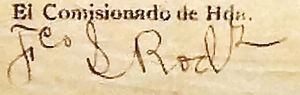 El Comisionado de Hda.
Fco L Rodz